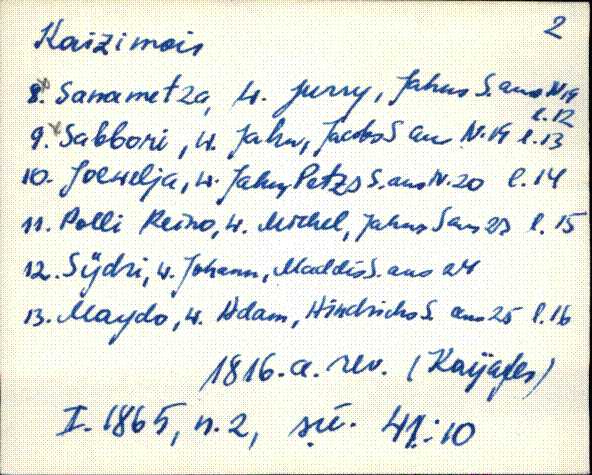 2
Kaizimois
8. Sanametza, W. Jurry, Jahns S. aus N. 19 l. 12
9. Sabbori, W. Jahn, Jacobs S aus N. 19 l. 13
10. Joewelja, W. Jahn, Petzs S. aus N. 20 l. 14
11. Polli Reino, W. Michel, Jahns S aus 23 l. 15
12. Sÿdri, W. Johann, Maddis S. aus 24
13. Maydo, W. Adam, Hindrichs S. aus 25 l. 16
1816. a. rev. (Kayafer)
I. 1865, n. 2, sü. 41:10